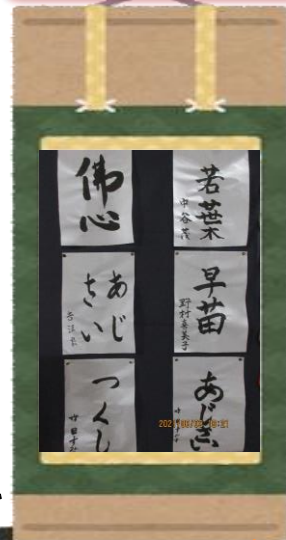 若葉
中谷茂
早苗
野村喜美子
あじさい
佛心
あじ
さい
つくし